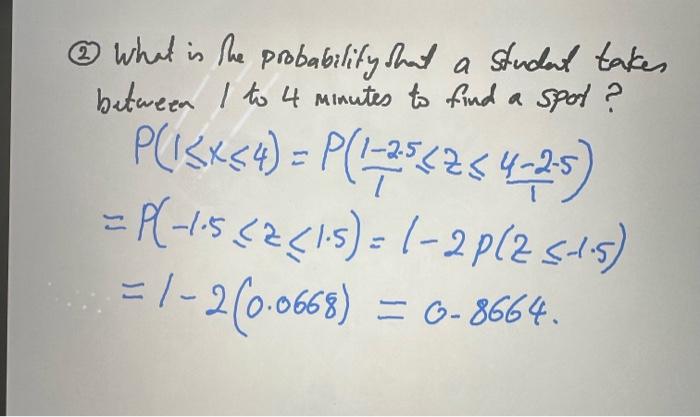 ② What is the probability that a student takes
between 1 to 4 minutes to find a spot?
P(1≤x≤4) = P(1-2.5/1 ≤ z ≤ 4-2.5/1)
= P(-1.5 ≤ z ≤ 1.5) = 1 - 2P(z ≤ -1.5)
= 1 - 2(0.0668) = 0.8664.